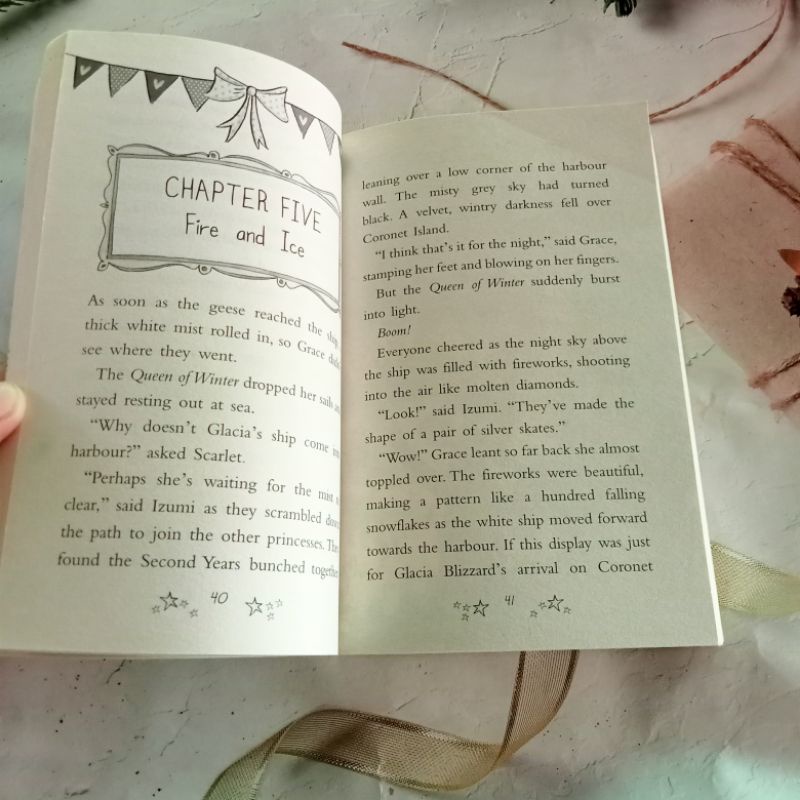 CHAPTER FIVE
Fire and Ice
As soon as the geese reached the
thick white mist rolled in, so Grace
see where they went.
The Queen of Winter dropped her sails
stayed resting out at sea.
“Why doesn’t Glacia’s ship come
harbour?” asked Scarlet.
“Perhaps she’s waiting for the mist
clear,” said Izumi as they scrambled down
the path to join the other princesses.
found the Second Years bunched together
40
leaning over a low corner of the harbour
wall. The misty grey sky had turned
black. A velvet, wintry darkness fell over
Coronet Island.
“I think that’s it for the night,” said Grace,
stamping her feet and blowing on her fingers.
But the Queen of Winter suddenly burst
into light.
Boom!
Everyone cheered as the night sky above
the ship was filled with fireworks, shooting
into the air like molten diamonds.
“Look!” said Izumi. “They’ve made the
shape of a pair of silver skates.”
“Wow!” Grace leant so far back she almost
toppled over. The fireworks were beautiful,
making a pattern like a hundred falling
snowflakes as the white ship moved forward
towards the harbour. If this display was just
for Glacia Blizzard’s arrival on Coronet
41